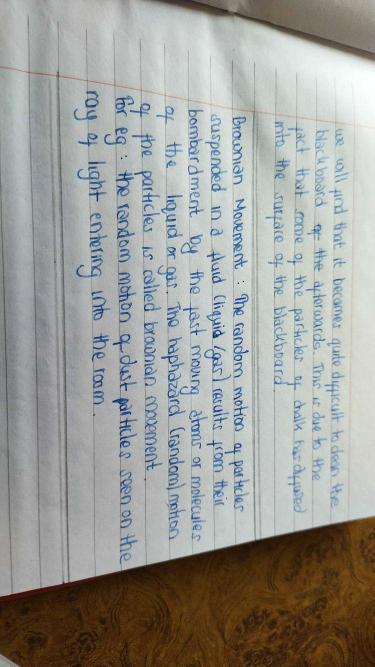 we will find that it becomes quite difficult to clean the
blackboard of the afterwards. This is due to the
fact that some of the particles of chalk has diffused
into the surface of the blackboard.
Brownian Movement : The random motion of particles
suspended in a fluid (liquid / gas) results from their
bombardment by the fast moving atoms or molecules
of the liquid or gas. The haphazard (random) motion
of the particles is called brownian movement.
For eg : the random motion of dust particles seen on the
ray of light entering into the room.